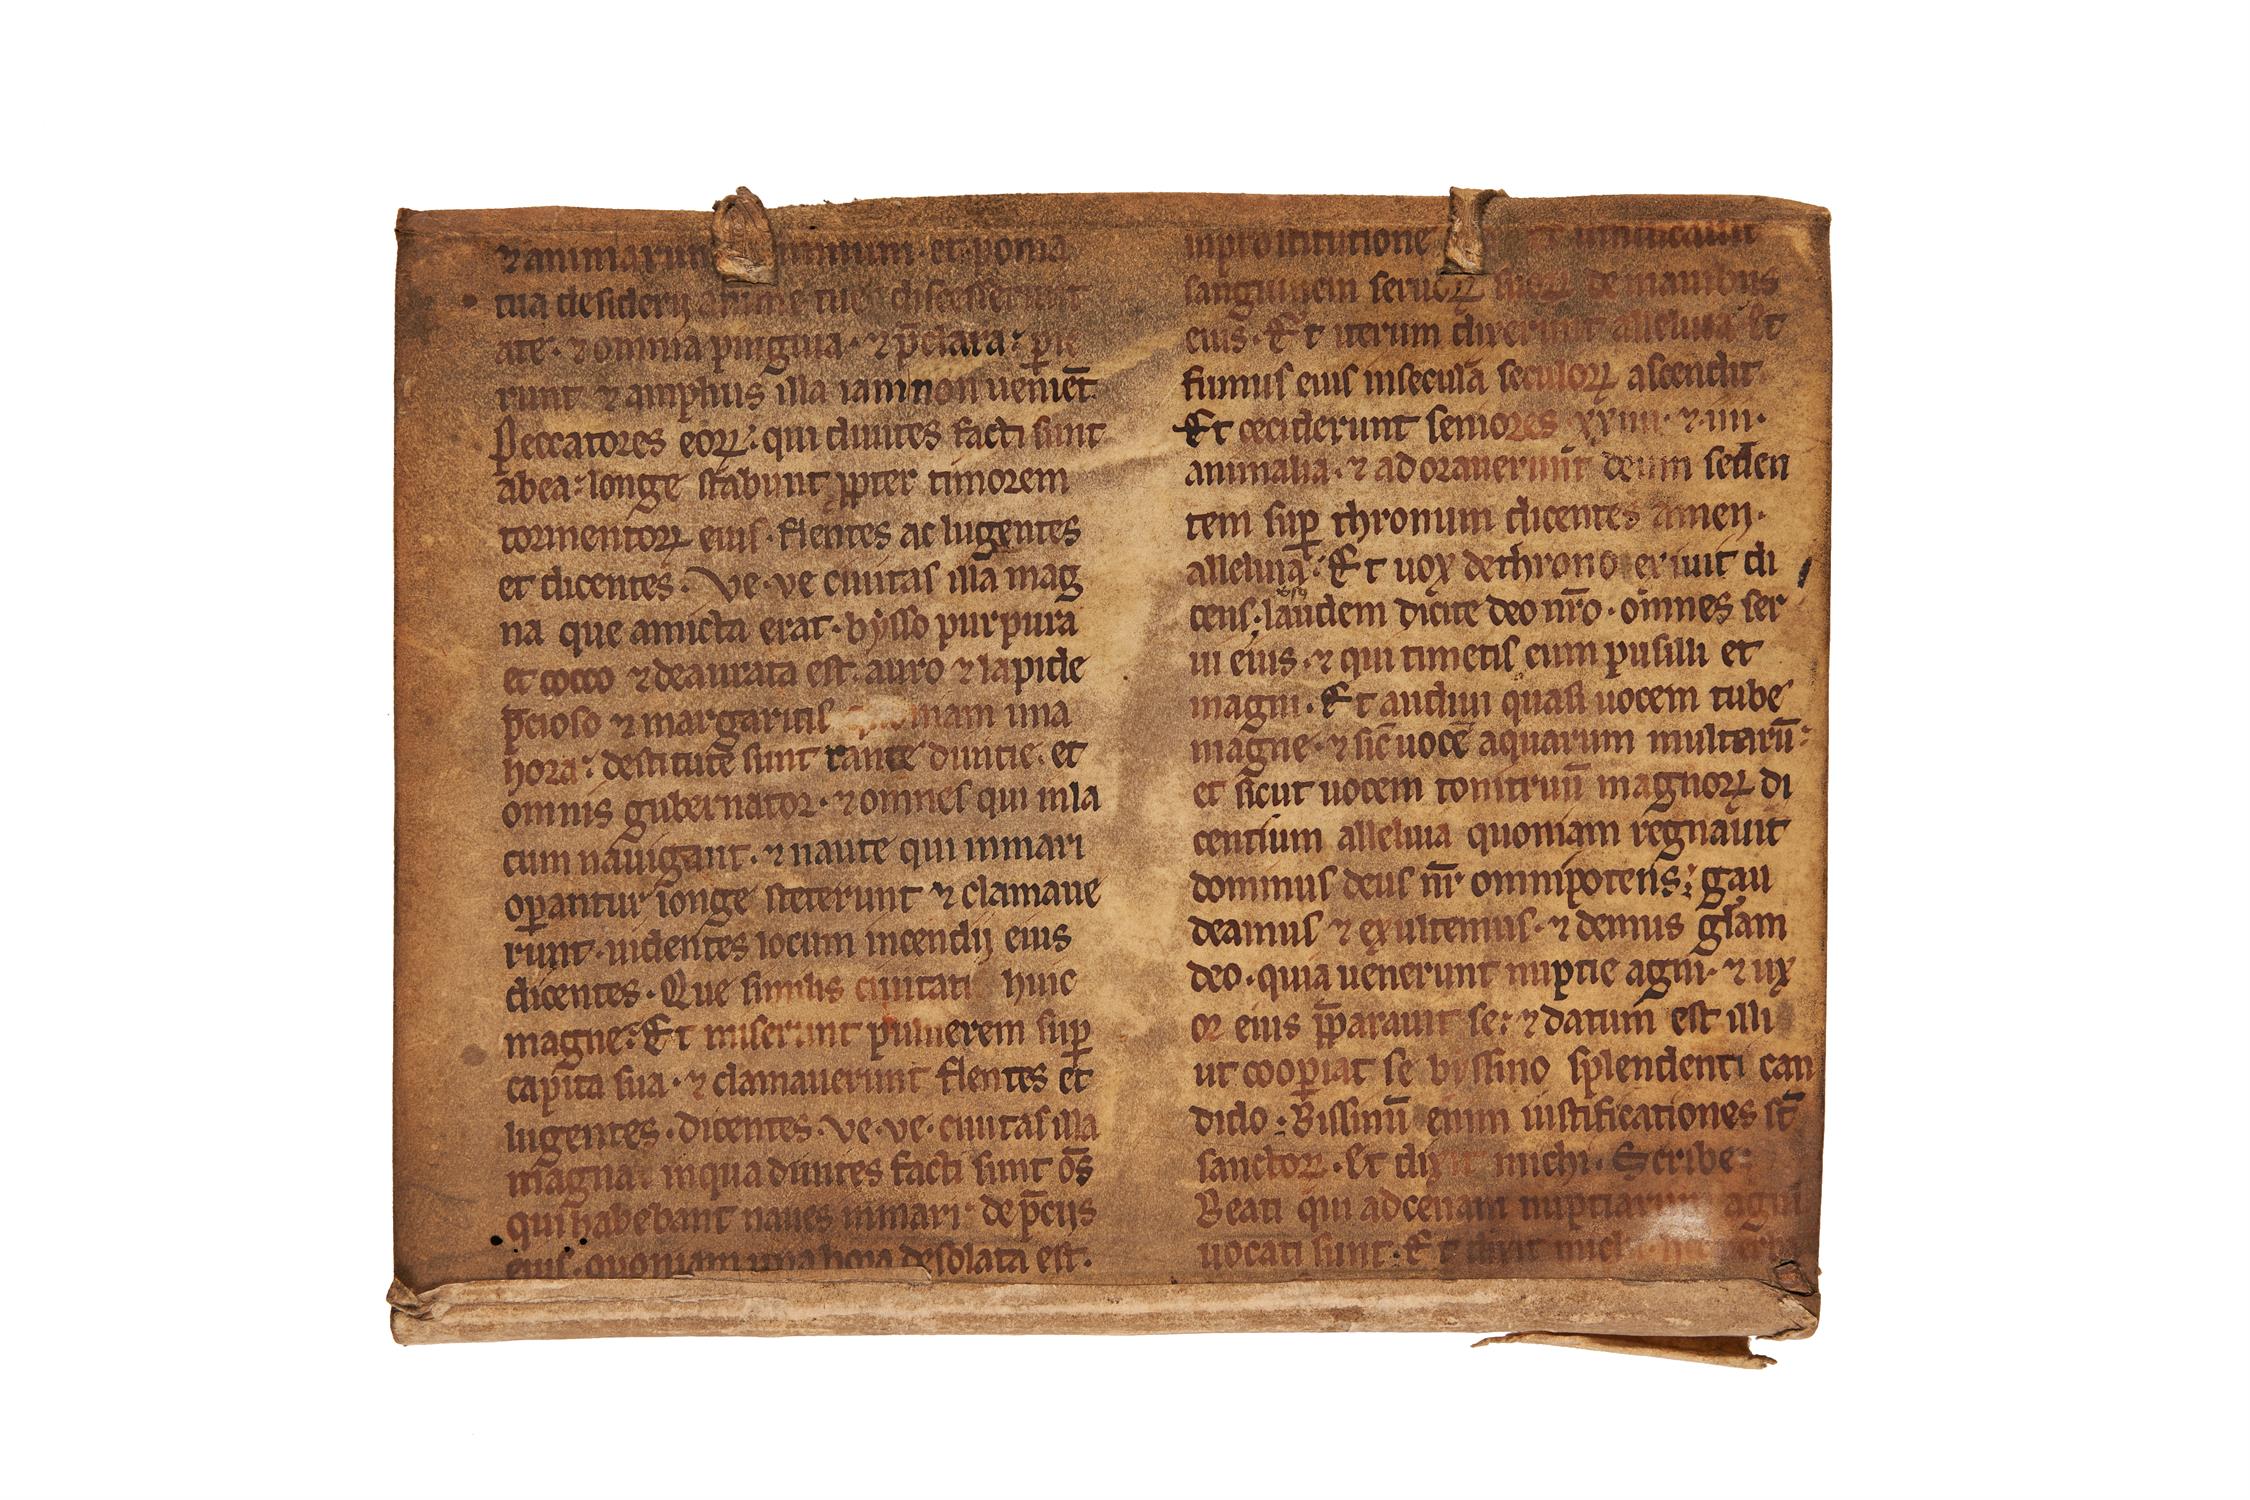 ⁊ animarum hominum · et poma
tua desiderij anime tue discesserunt
a te · ⁊ omnia pinguia · ⁊ p̄clara : perie
runt ⁊ amplius illa iam non uenient̄
Peccatores eoꝝ : qui diuites facti sunt
abea : longe stabunt ꝓpter timorem
tormentoꝝ eius · flentes ac lugentes
et dicentes · Ve · ve ciuitas illa mag
na que amicta erat · bysso purpura
et cocco ⁊ deaurata est · auro ⁊ lapide
p̄cioso ⁊ margaritis quoniam una
hora : destitute sunt tante diuitie · et
omnis gubernator · ⁊ omnes qui inla
cum nauigant · ⁊ naute qui inmari
oꝑantur longe steterunt ⁊ clamaue
runt · uidentes locum incendij eius
dicentes · Que similis ciuitati huic
magne : Et miserunt puluerem suꝑ
capita sua · ⁊ clamauerunt flentes et
lugentes · dicentes · ve · ve · ciuitas illa
magna : inqua diuites facti sunt oēs
qui habebant naues inmari · de p̄ciis
eius · quoniam una hora desolata est ·
inprostitutione et uindicauit
sanguinem seruoꝝ suoꝝ de manibus
eius · Et iterum dixerunt alleluia · Et
fumus eius insecula seculoꝝ ascendit ·
Et ceciderunt seniores xxiiii · ⁊ iiii ·
animalia · ⁊ adorauerunt deum seden
tem suꝑ thronum dicentes amen ·
alleluia : Et uox dethrono exiuit di
cens : laudem dicite deo nr̄o · omnes ser
ui eius · ⁊ qui timetis eum pusilli et
magni · Et audiui quasi uocem tube
magne · ⁊ sic̄ uocē aquarum multarū :
et sicut uocem tonitruū magnoꝝ di
centium alleluia quoniam regnauit
dominus deus nr̄ omnipotens : gau
deamus ⁊ exultemus · ⁊ demus gl̄am
deo · quia uenerunt nuptie agni · ⁊ ux
or eius p̄parauit se : ⁊ datum est illi
ut cooꝑiat se byssino splendenti can
dido : Bissinū enim iustificationes st̄
sanctoꝝ · Et dixit michi · Scribe :
Beati qui adcenam nuptiarum agni
uocati sunt · Et dixit michi